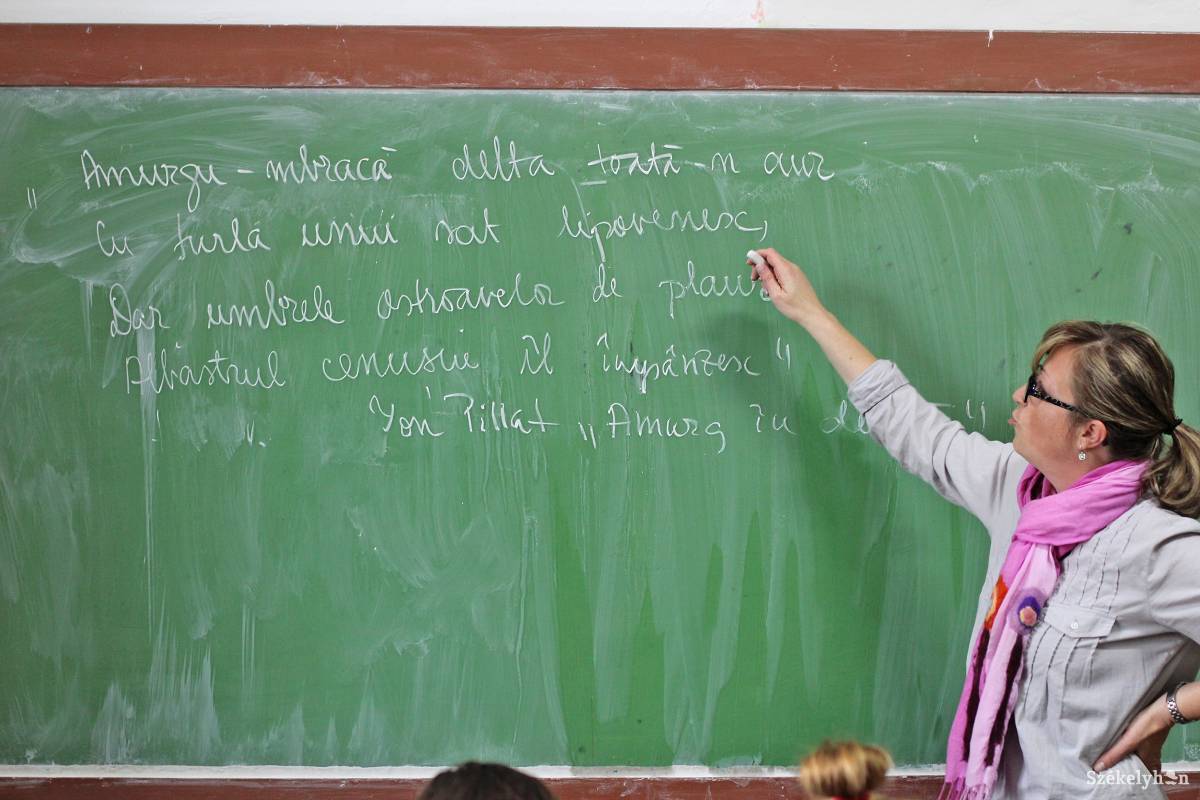 „ Amurgu-mbracă delta toată-n aur
Cu turlă unui sat lipovenesc,
Dar umbrele ostroavelor de plaur
Albastrul cenusiu îl înpânzesc "
Ion Pillat „Amurg în de "
Székelyhon